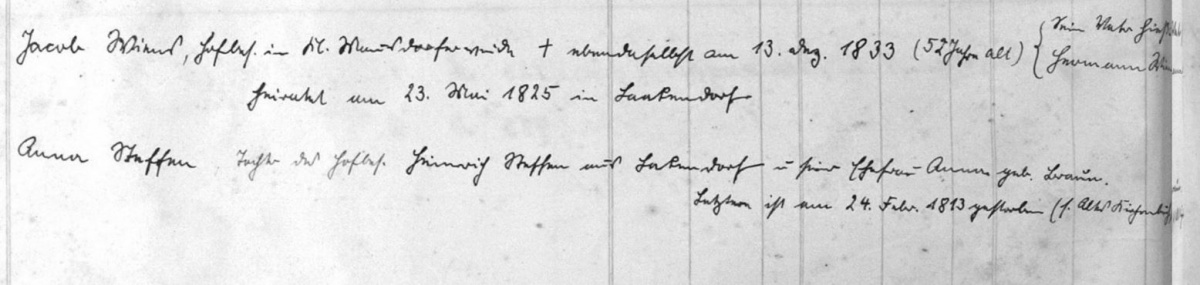 Jacob Wiens, Hofbes. in Kl. Mausdorferweide † ebendaselbst am 13. Dez. 1833 (52 Jahre alt) { Sein Vater hieß
Hermann Wiens
heiratet am 23. Mai 1825 in Laakendorf
Anna Steffen, Tochter des Hofbes. Heinrich Steffen aus Lakendorf u seiner Ehefrau Anna geb. Braun.
Letztere ist am 24. Febr. 1813 gestorben (s. Altes Kirchenbuch